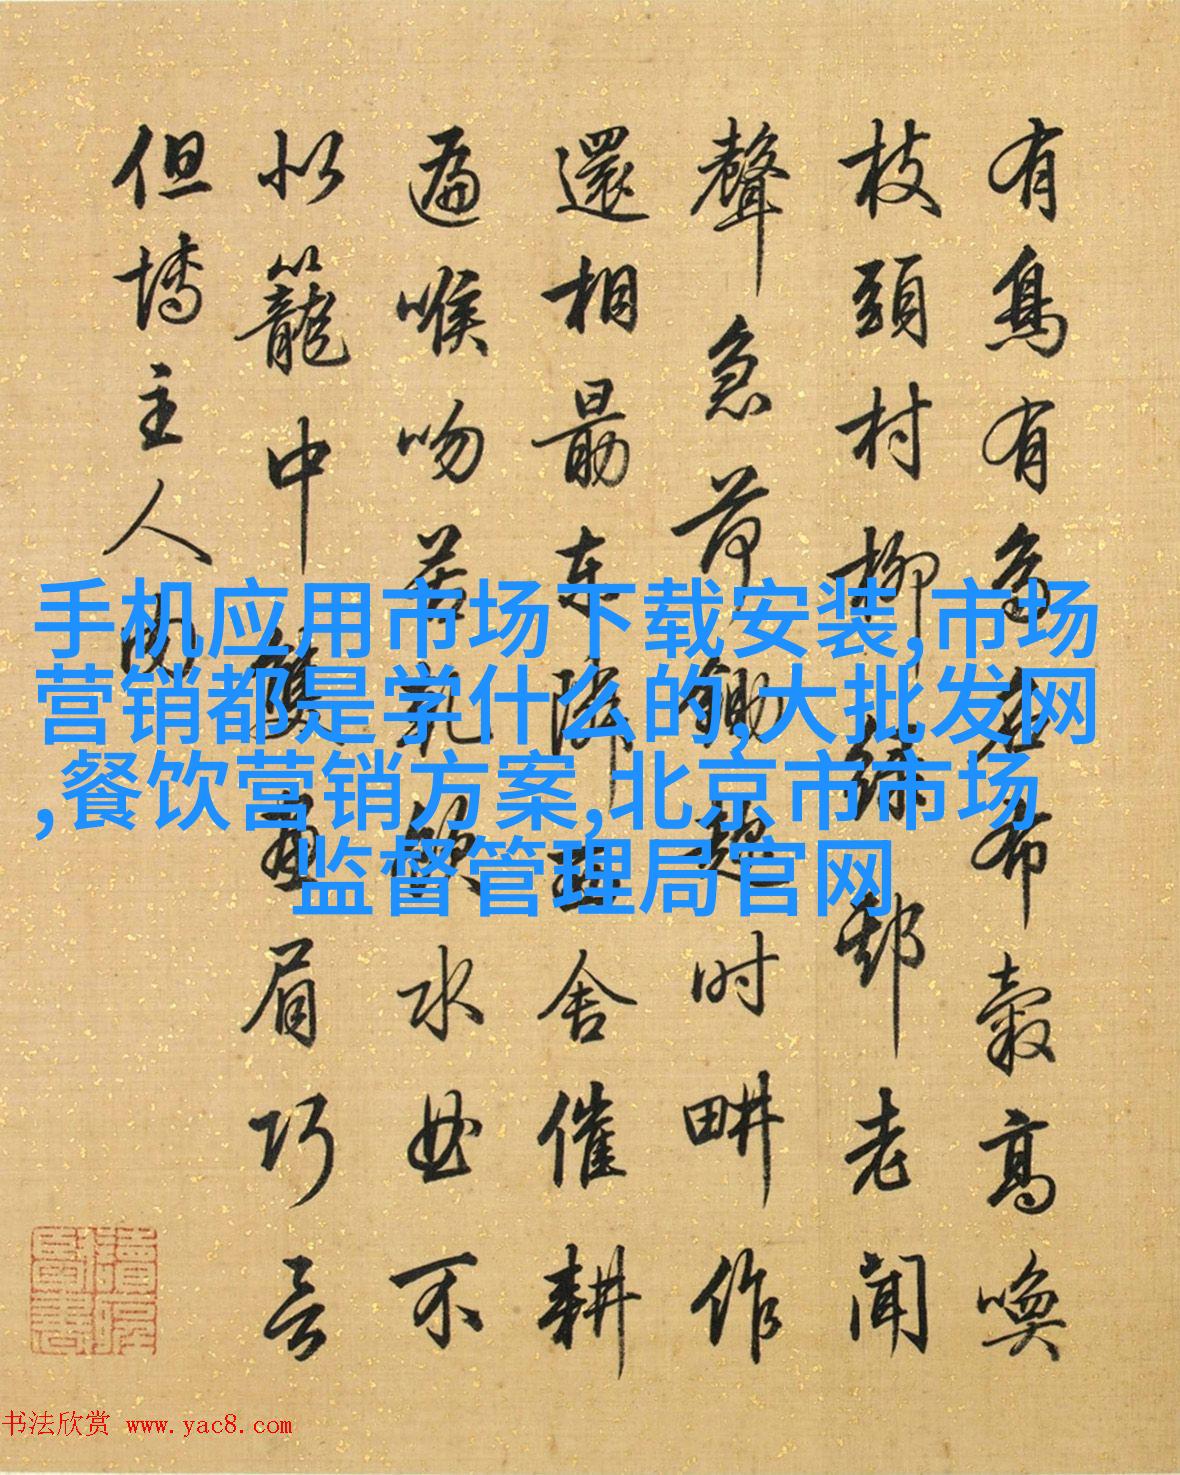 有鳥有鳥名布穀高喚
枝頭村柳綠邨老聞
聲急荷鋤趁時畊作
還相勗東隣西舍催耕
遍喉吻若乾飲水曲不
似籠中畫眉巧言
但博主人
手机应用市场下载安装,市场
营销都是学什么的,大批发网
,餐饮营销方案,北京市市场
监督管理局官网
书法欣赏 www.yac8.com